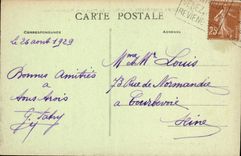 CARTE POSTALE
CORRESPONDANCE
ADRESSE
le 26 aout 1929
Bonnes Amitiés
à
vous trois
Mme et Mr Louis
73 Rue de Normandie
à Courbevoie
Seine
25